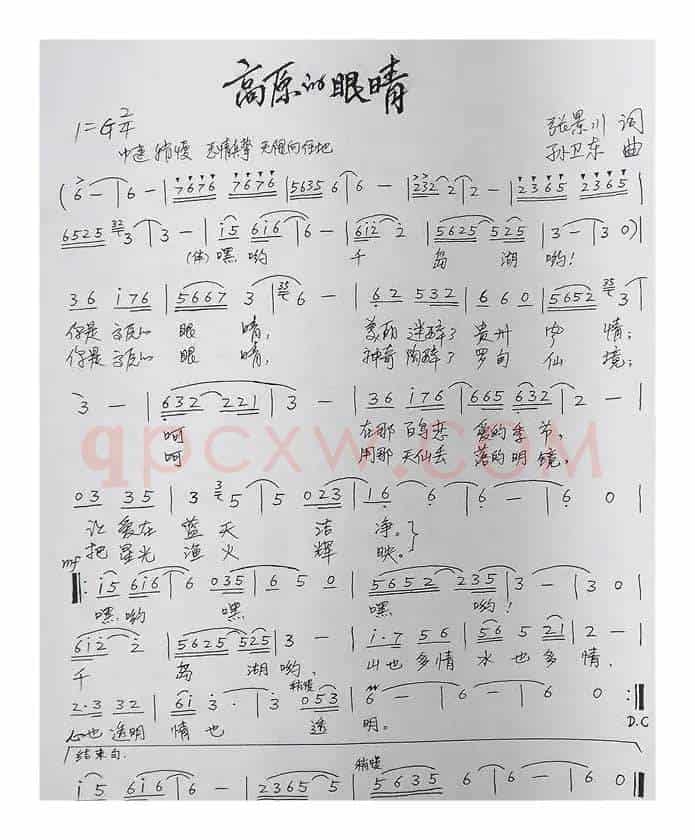 高原的眼睛
1=G 2/4
张景川 词
中速稍慢
孙卫东 曲
(6 - | 6 - | 7676 7676 | 5635 6 | 6 - | 232 2 | 2 - | 2365 2365 |
6525 3 | 3 - | i5 6i6 | 6 - | 6i2 2 | 5625 525 | 3 - | 3 0) |
嘿 哟 千 岛 湖 哟!
36 i76 | 5667 3 | 6 - | 62 532 | 6 60 | 5652 3 |
你是 高原的 眼 睛, 迷醉了 贵州 情;
你是 高原的 眼 睛, 神奇 陶醉了 罗甸 仙 境;
3 - | 632 221 | 3 - | 36 i76 | 665 632 | 2 - |
呵 在那 百鸟恋 爱的季 节,
呵 用那 天仙丢 落的明 镜,
qpcxw.com
03 35 | 3 5 | 5 023 | 16 6 | 6 - | 6 0 |
让 爱在 蓝 天 洁 净。
把 星光 渔 火 辉 映。
mf
i5 6i6 | 6 035 | 6 5 0 | 5652 235 | 3 - | 3 0 |
嘿 哟 嘿 嘿 哟!
6i2 2 | 5625 525 | 3 - | i·7 56 | 56 5 2i | 2 - |
千 岛 湖 哟, 山也 多情 水 也 多 情,
稍慢
2·3 32 | 6i 3· | 3 053 | 6 - | 6 - | 6 0 :|
心也 透明 情 也 透 明。
D.C
结束句
稍慢
i5 6i6 | 6 - | 2365 5 | 5635 6 | 6 - | 6 0 |